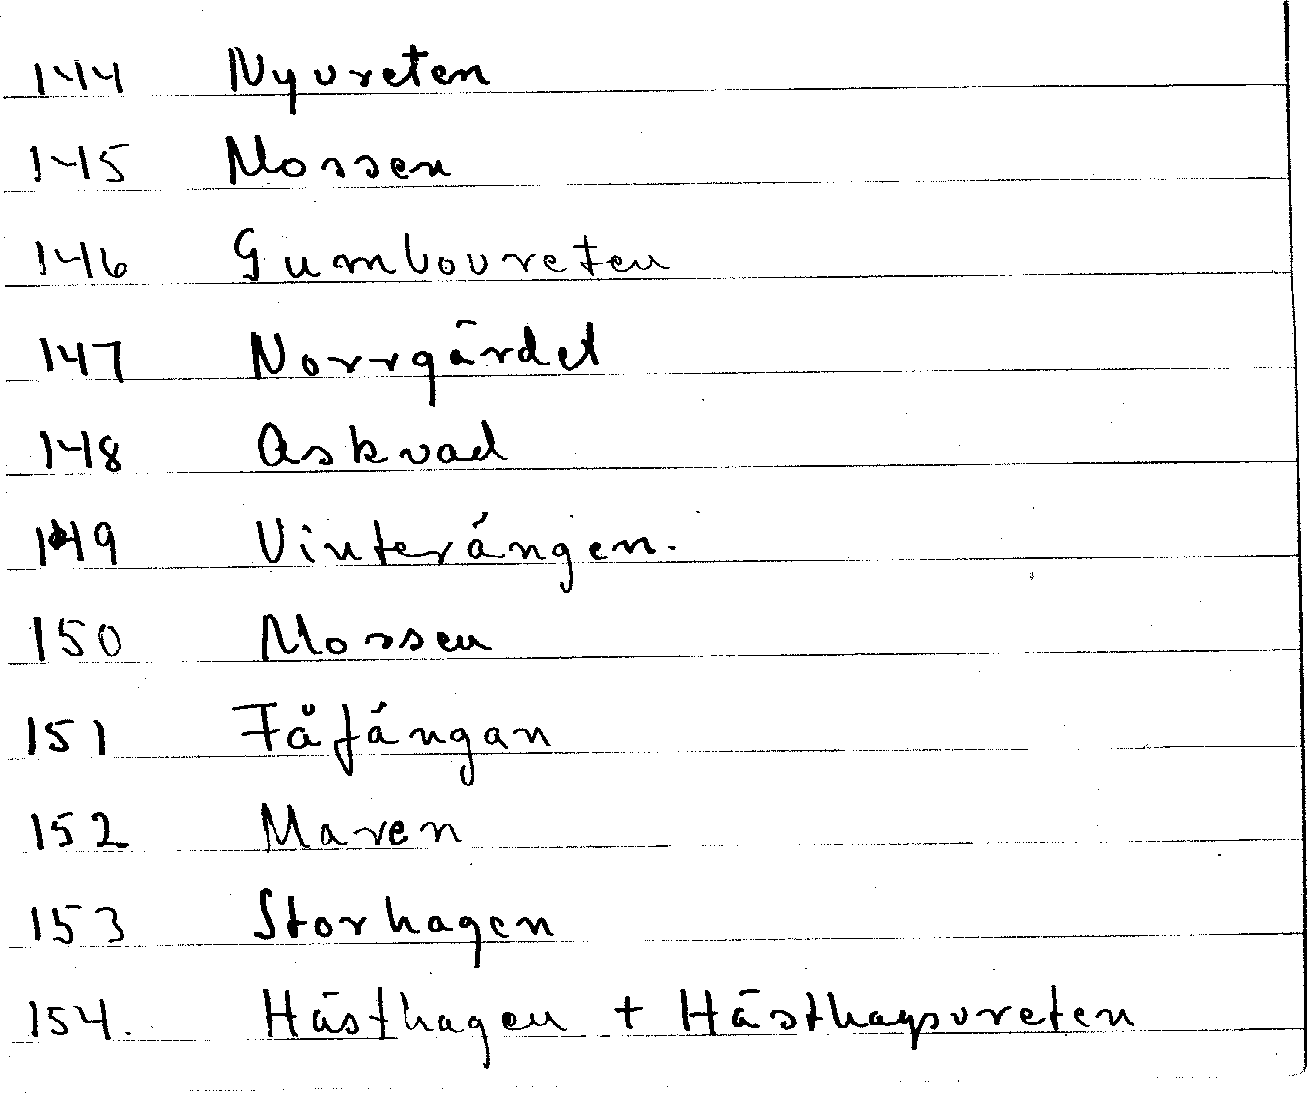 144 Nyvreten
145 Mossen
146 Gumbovreten
147 Norrgärdet
148 Askvad
149 Vinterängen.
150 Mossen
151 Fåfängan
152 Maren
153 Storhagen
154. Hästhagen + Hästhagsvreten